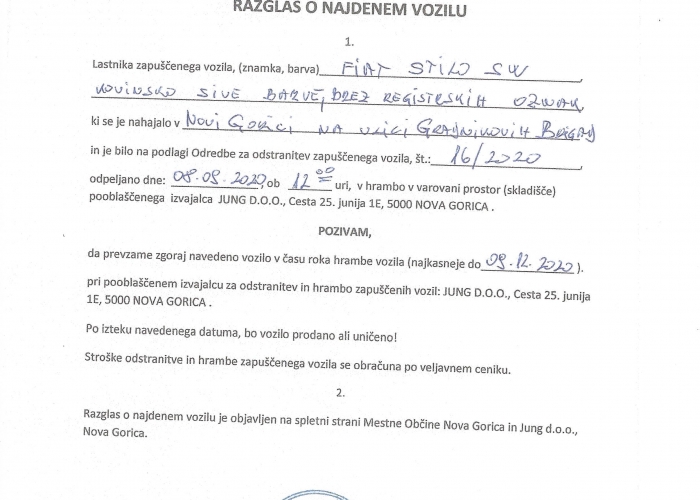 RAZGLAS O NAJDENEM VOZILU
1.
Lastnika zapuščenega vozila, (znamka, barva) FIAT STILO SW,
KOVINSKO SIVE BARVE, BREZ REGISTRSKIH OZNAK
ki se je nahajalo v NOVI GORICI NA ULICI GRADNIKOVIH BRIGAD
in je bilo na podlagi Odredbe za odstranitev zapuščenega vozila, št.: 16/2020,
odpeljano dne: 08.09.2020, ob 12 00 uri, v hrambo v varovani prostor (skladišče)
pooblaščenega izvajalca JUNG D.O.O., Cesta 25. junija 1E, 5000 NOVA GORICA .
POZIVAM,
da prevzame zgoraj navedeno vozilo v času roka hrambe vozila (najkasneje do 09.12.2020 ).
pri pooblaščenem izvajalcu za odstranitev in hrambo zapuščenih vozil: JUNG D.O.O., Cesta 25. junija
1E, 5000 NOVA GORICA .
Po izteku navedenega datuma, bo vozilo prodano ali uničeno!
Stroške odstranitve in hrambe zapuščenega vozila se obračuna po veljavnem ceniku.
2.
Razglas o najdenem vozilu je objavljen na spletni strani Mestne Občine Nova Gorica in Jung d.o.o.,
Nova Gorica.